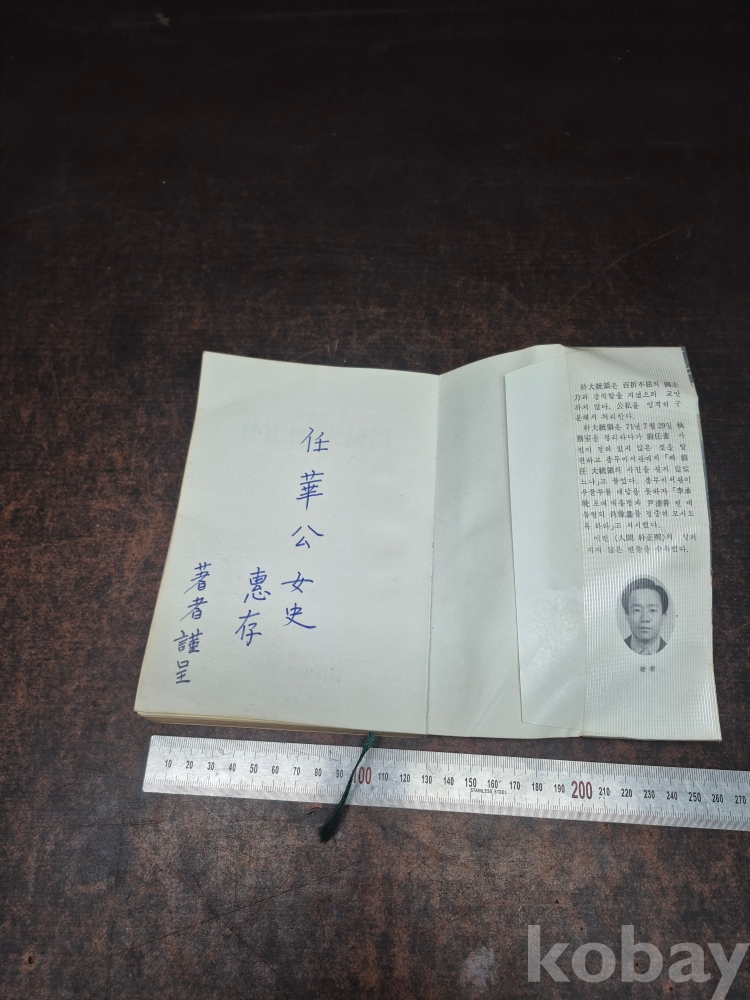 任華公女史
惠存
著者謹呈
朴大統領은 百折不屈의
力과 강직함을 지녔으되 교만
하지 않다. 公私를 엄격히 구
분해서 처리한다.
朴大統領은 71년 7월 29일 執
務室을 정리하다가 前任者 사
진이 걸려 있지 않은 것을 발
견하고 총무비서관에게 「왜 前
任 大統領의 사진을 걸지 않았
느냐」고 물었다. 총무비서관이
우물쭈물 대답을 못하자 「李承
晩 초대 대통령과 尹潽善 전 대
통령의 肖像畵를 정중히 모시도
록 하라」고 지시했다.
이번 《人間 朴正熙》의 알려
지지 않은 면들을 수록했다.
著者
10 20 30 40 50 60 70 80 90 100 110 120 130 140 150 160 170 180 190 200 210 220 230 240 250 260 270
STAINLESS STEEL
kobay